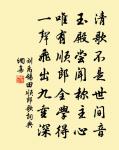 清歌不是世间音
玉殿尝闻称主心
唯有顺郎全学得
一声飞出九重深
刘禹锡田顺郎歌词典
网春